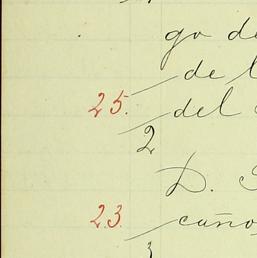 go de
de l
25. del
2
D.
23. caño
3